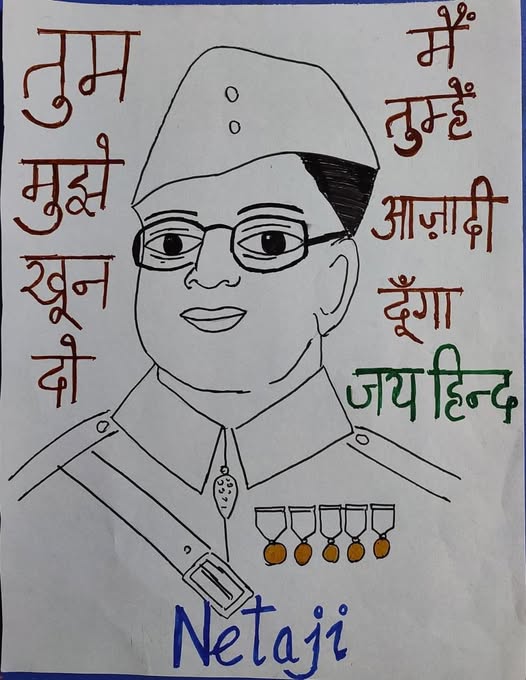 तुम
मुझे
खून
दो
मैं
तुम्हें
आज़ादी
दूँगा
जय हिन्द
Netaji